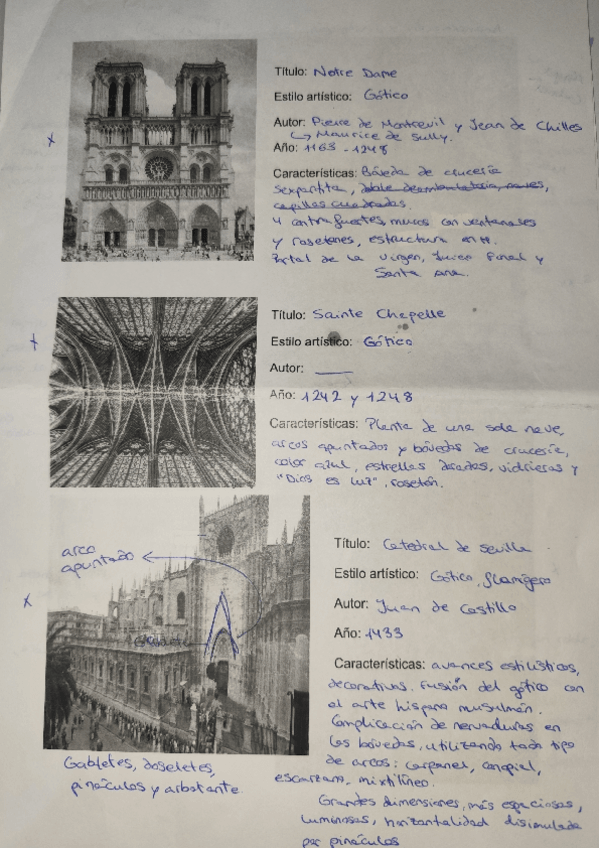 Título: Notre Dame
Estilo artístico: Gótico
Autor: Pierre de Montrevil y Jean de Chilles
↳ Maurice de Sully.
Año: 1163 - 1248
Características: Bóveda de crucería
sexpartita,
capillas cuadradas.
4 contrafuertes, muros con ventanales
y rosetones, estructura en H.
Portal de la Virgen, Juicio Final y
Santa Ana.
Título: Sainte Chapelle
Estilo artístico: Gótico
Autor: ___
Año: 1242 y 1248
Características: Planta de una sola nave,
arcos apuntados y bóvedas de crucería,
color azul, estrellas doradas, vidrieras y
"Dios es luz", rosetón.
arco
apuntado
Título: Catedral de Sevilla
Estilo artístico: Gótico flamígero
Autor: Juan de Castillo
Año: 1433
Características: avances estilísticos,
decorativas. Fusión del gótico con
el arte hispano musulmán.
Complicación de nervaduras en
las bóvedas, utilizando todo tipo
de arcos: carpanel, conopial,
escarzano, mixtilíneo.
Grandes dimensiones, más espaciosas,
luminosas, horizontalidad disimulada
por pináculos
Gabletes, doseletes,
pináculos y arbotante.